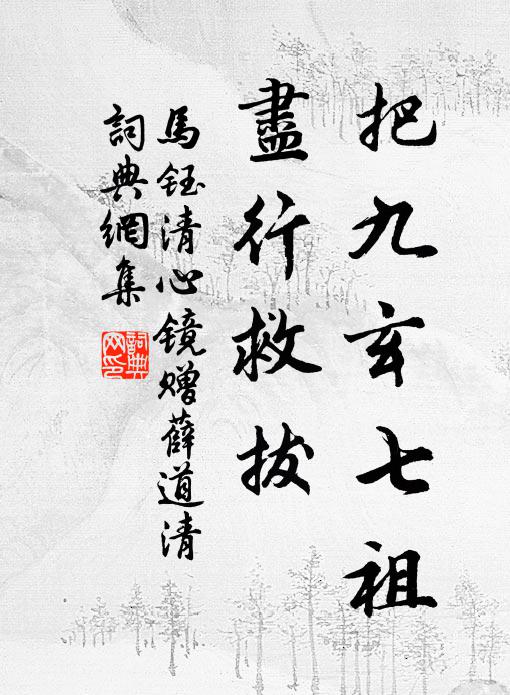 把九玄七祖
盡行救拔
馬鈺清心鏡赠薛道清
詞典網集
詞典網印